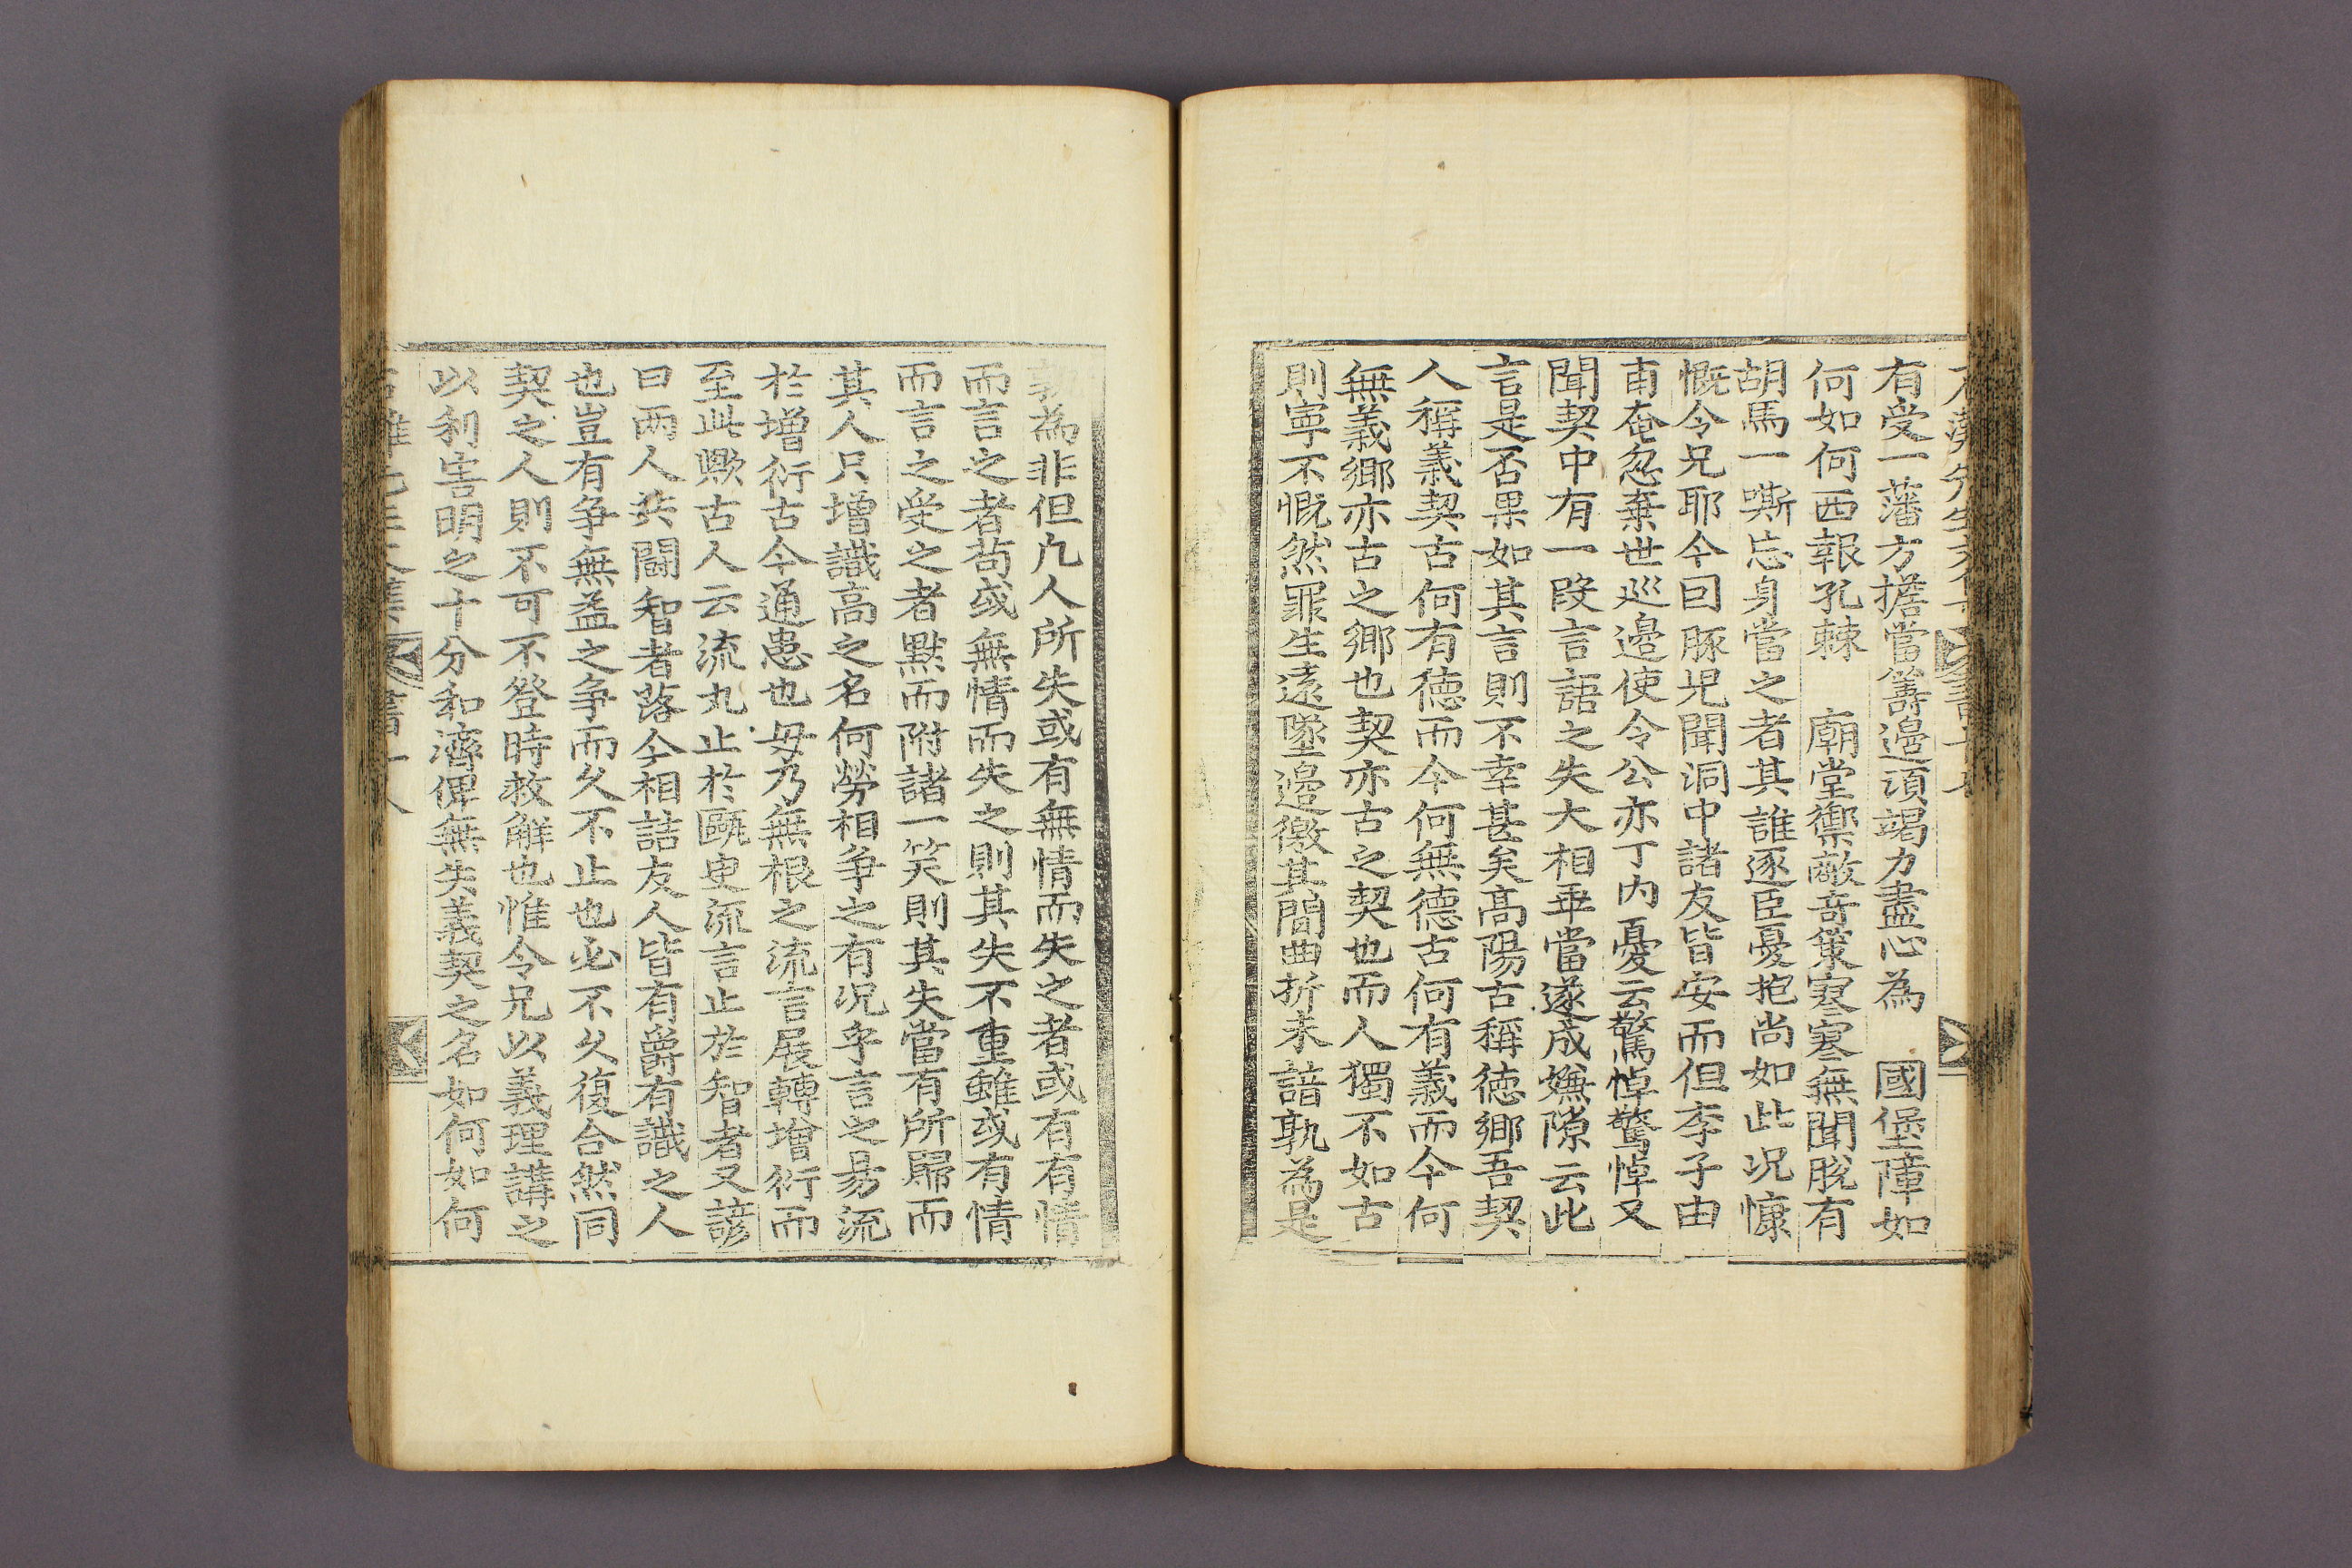 有受一藩方擔當籌邊須竭力盡心為 國堡障如
何如何西報孔棘 廟堂禦敵奇策寥寥無聞脫有
胡馬一嘶忘身當之者其誰逐臣憂抱尚如此况慷
慨令兄耶今回豚児聞洞中諸友皆安而但李子由
甫奄忽棄世巡邊使令公亦丁内憂云驚悼驚悼又
聞契中有一段言語之失大相乖當遂成嫌隙云此
言是否果如其言則不幸甚矣高陽古稱徳鄉吾契
人稱義契古何有德而今何無德古何有義而今何
無義鄉亦古之鄉也契亦古之契也而人獨不如古
則寧不慨然罪生遠墜邊徼其間曲折未諳孰為是
孰為非但凢人所失或有無情而失之者或有有情
而言之者苟或無情而失之則其失不重雖或有情
而言之受之者黙而附諸一笑則其失當有所歸而
其人只增識高之名何勞相争之有况乎言之易流
於增衍古今通患也毋乃無根之流言展轉增衍而
至此歟古人云流丸止於甌臾流言止於智者又諺
曰两人共鬪智者落今相詰友人皆有爵有識之人
也豈有争無益之争而久不止也必不久復合然同
契之人則不可不登時救解也惟令兄以義理講之
以利害明之十分和濟俾無失義契之名如何如何